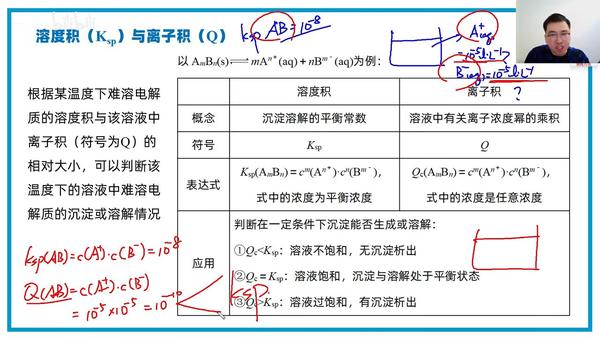 溶度积（Ksp）与离子积（Q）
Ksp AB=10⁻⁸
A⁺(aq)
=10⁻⁵
B⁻(aq)=10⁻⁵
?
以 AmBn(s)⇌mAⁿ⁺(aq)+nBᵐ⁻(aq)为例:
根据某温度下难溶电解
质的溶度积与该溶液中
离子积（符号为Q）的
相对大小，可以判断该
温度下的溶液中难溶电
解质的沉淀或溶解情况
溶度积 离子积
概念 沉淀溶解的平衡常数 溶液中有关离子浓度幂的乘积
符号 Ksp Q
表达式 Ksp(AmBn)=cᵐ(Aⁿ⁺)·cⁿ(Bᵐ⁻)， Qc(AmBn)=cᵐ(Aⁿ⁺)·cⁿ(Bᵐ⁻)，
式中的浓度为平衡浓度 式中的浓度是任意浓度
应用 判断在一定条件下沉淀能否生成或溶解:
①Qc<Ksp: 溶液不饱和，无沉淀析出
②Qc=Ksp: 溶液饱和，沉淀与溶解处于平衡状态
③Qc>Ksp: 溶液过饱和，有沉淀析出
Ksp(AB)=c(A⁺)·c(B⁻)=10⁻⁸
Q(AB)=c(A⁺)·c(B⁻)
=10⁻⁵×10⁻⁵=10⁻¹⁰
Ksp